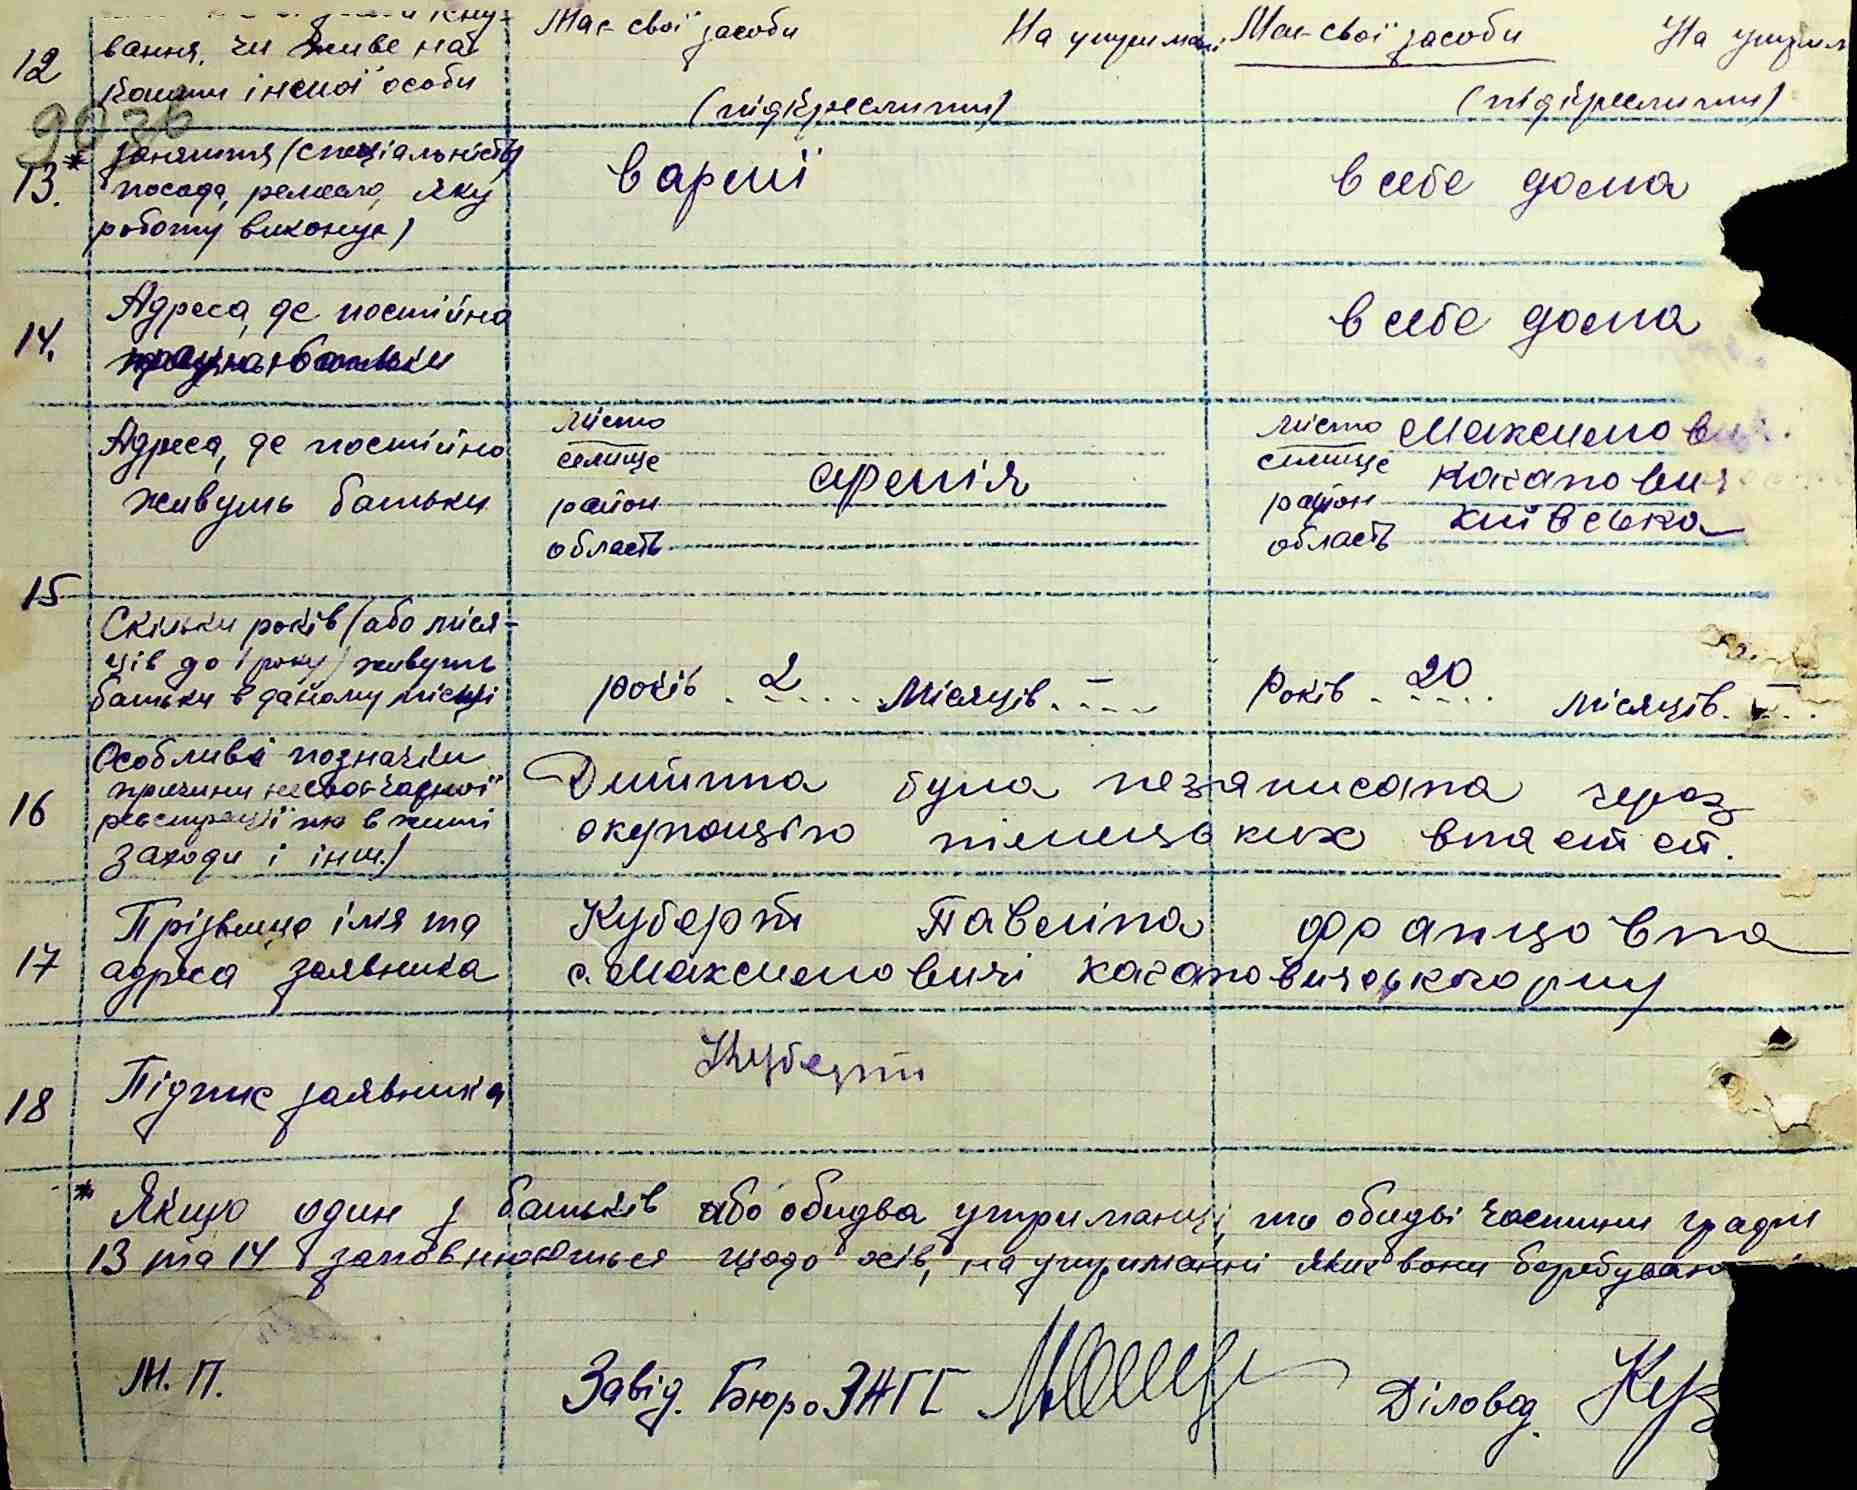 12 вання, чи живе на Має свої засоби На утриман. Має свої засоби На утрим
кошти іншої особи (підкреслити) (підкреслити)
9036
13.* заняття (спеціальність) в армії в себе дома
посада, ремесло, яку
роботу виконує)
14. Адреса, де постійно в себе дома
батьки
Адреса, де постійно місто місто Максимови
живуть батьки селище армія селище Каганович
район район Київська
область область
15 Скільки років (або міся-
ців до 1 року) живуть
батьки в даному місці років 2 місяців — Років 20 місяців —
16 Особливі позначки Дитина була незаписана через
причини несвоєчасної окупацією німецьких властей.
реєстрації в житі
заходи і інш.)
17 Прізвище ім'я та Куберт Павліна Францовна
адреса заявника с. Максимовичі Кагановичського р-ну
18 Підпис заявника Куберт
* Якщо один з батьків або обидва утриманці, то обидві частини графи
13 та 14 заповнюються щодо осіб, на утриманні яких вони перебувають
М.П. Завід. Бюро ЗАГС Діловод.